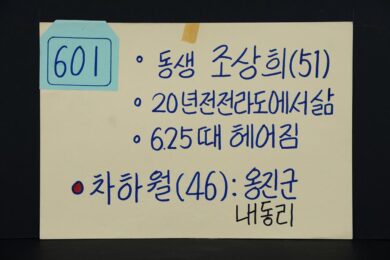 601
• 동생 조상희(51)
• 20년전전라도에서삶
• 6.25때 헤어짐
• 차하월(46): 옹진군
내동리